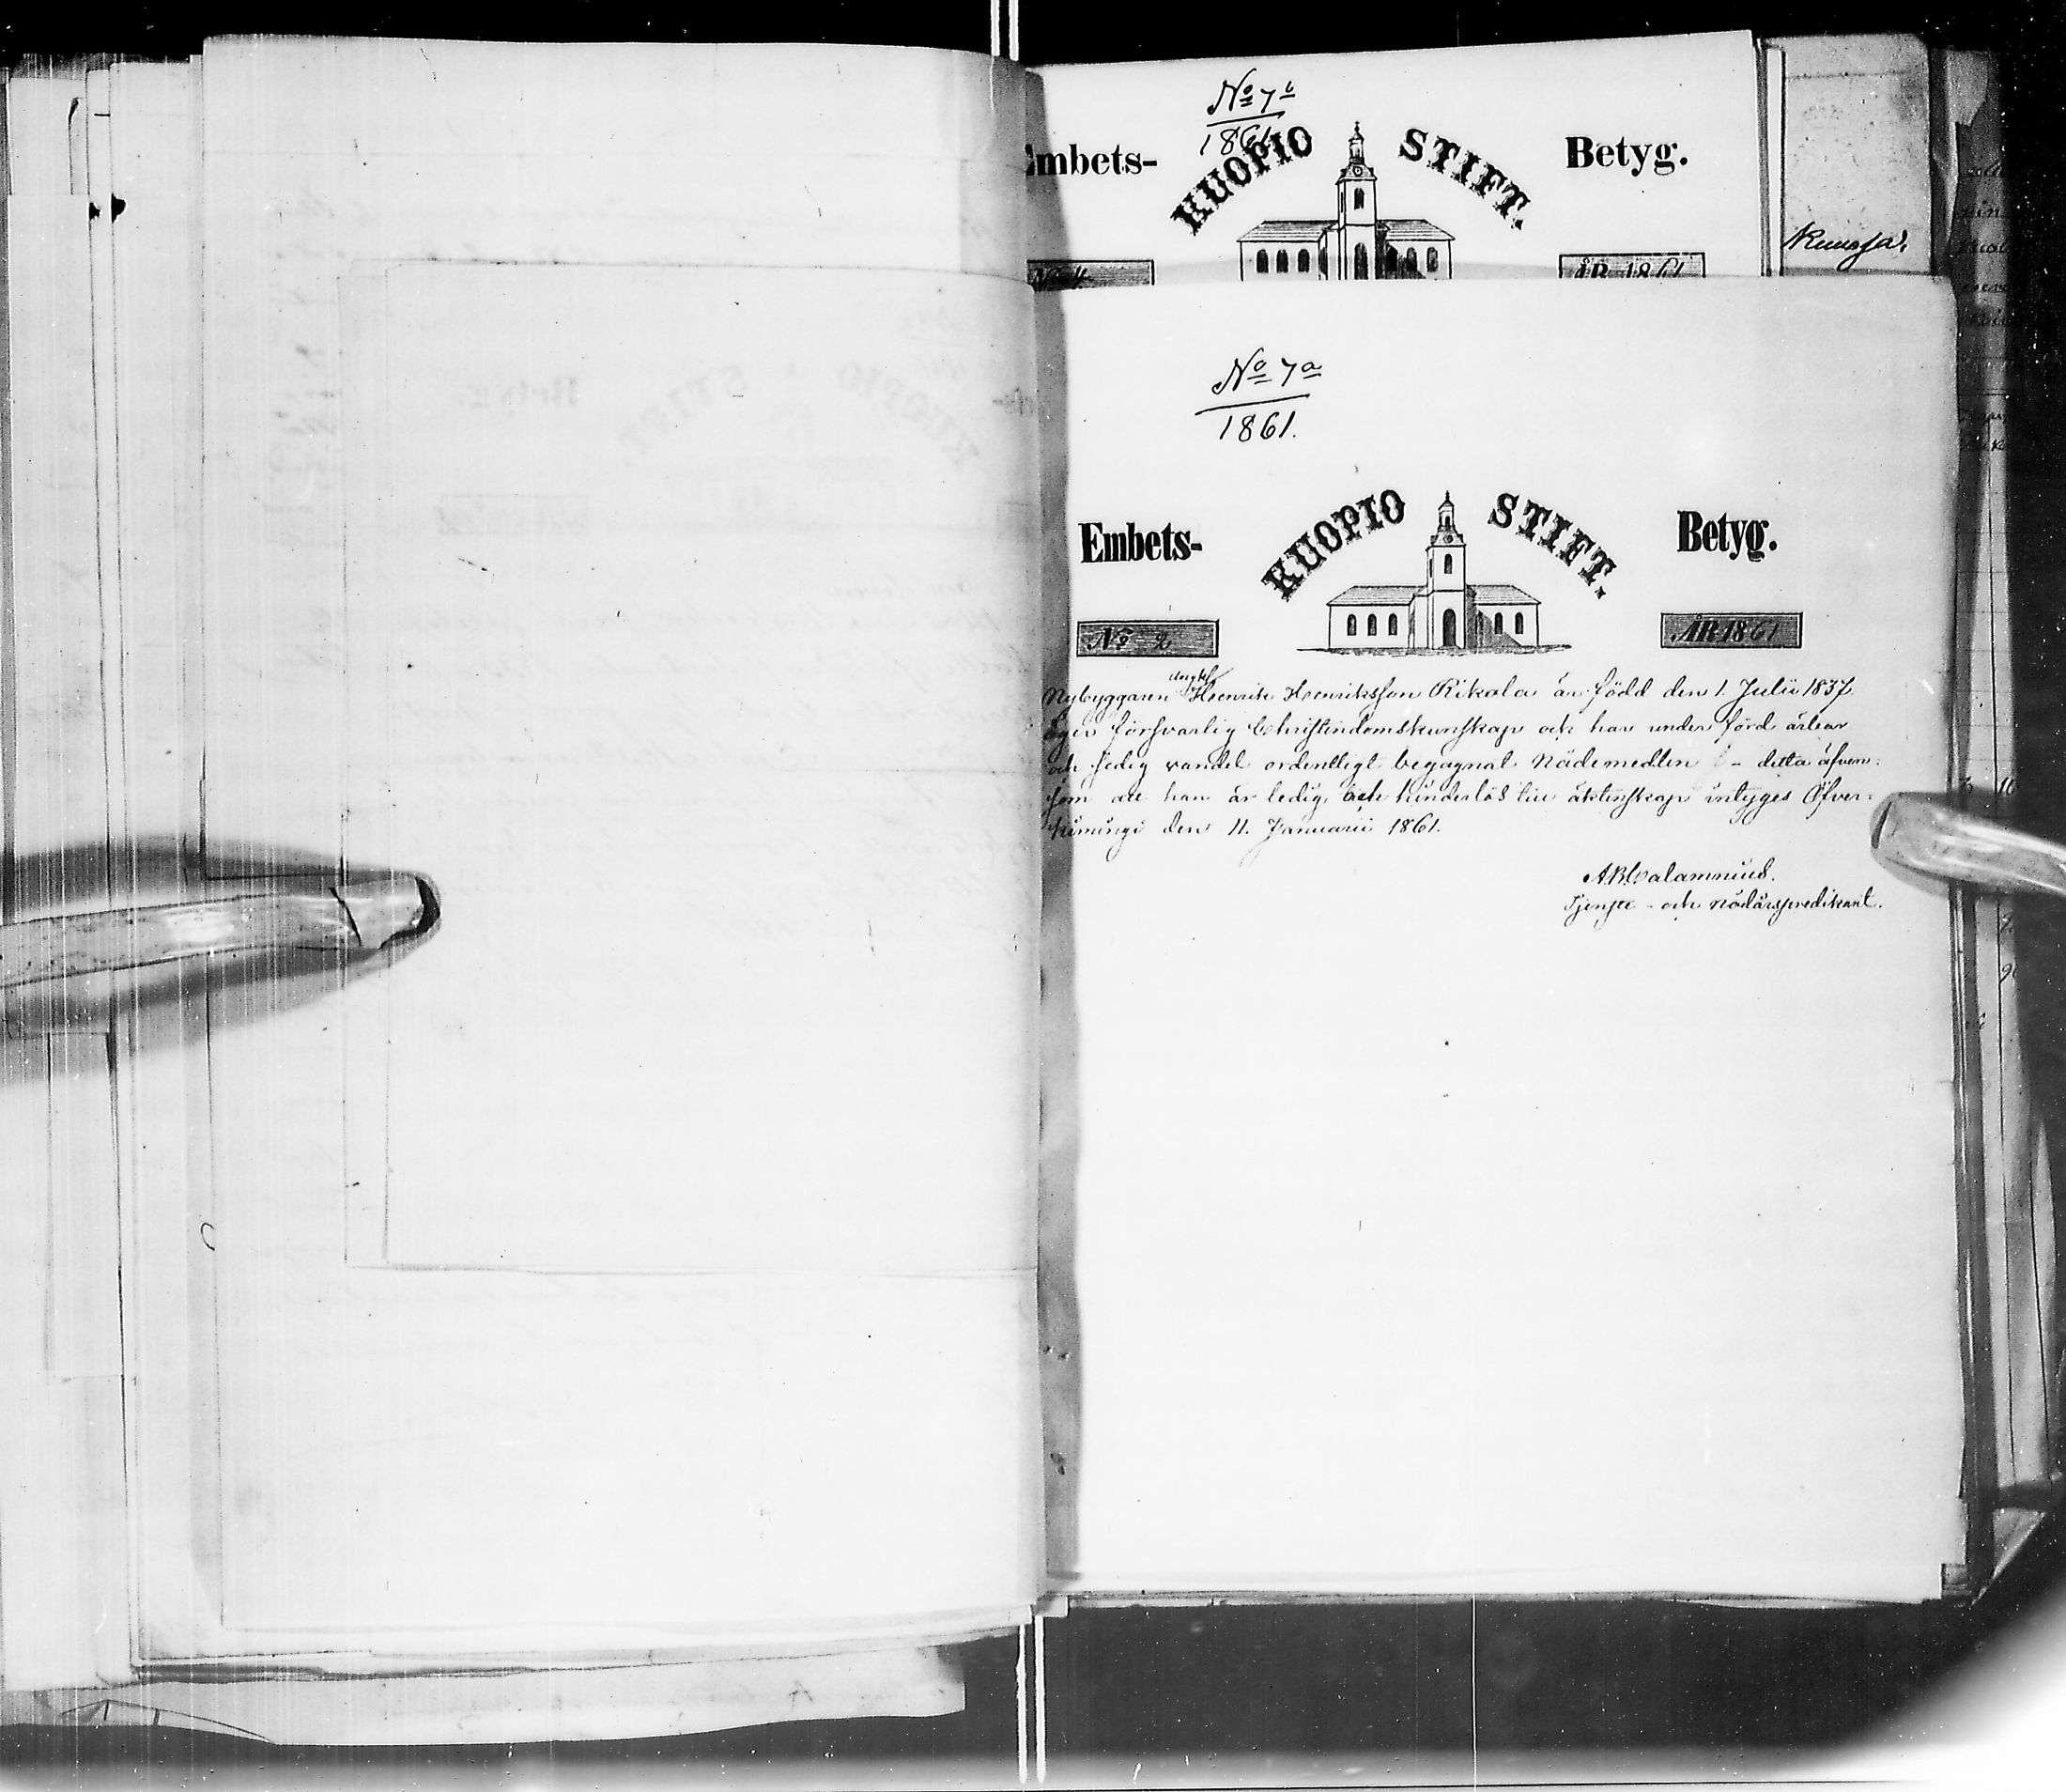 No 7b
1861
Embets- KUOPIO STIFT. Betyg.
No 4 ÅR 1861
Kunaja.
No 7a
1861.
Embets- KUOPIO STIFT. Betyg.
No 2 ÅR 1861
Nybyggaren Ungkl Henrik Henriksson Rikala är född den 1. Julii 1837
Eger försvarlig Christindomskunskap och har under förd ärbar
och sedig vandel ordentligt begagnat Nådemedlen - detta äfven-
som att han är ledig och hinderlös till äktenskap intyges Öfver-
kiimingi den 11. Januarii 1861.
A B Calamnius.
Tjenste- och nådårspredikant.